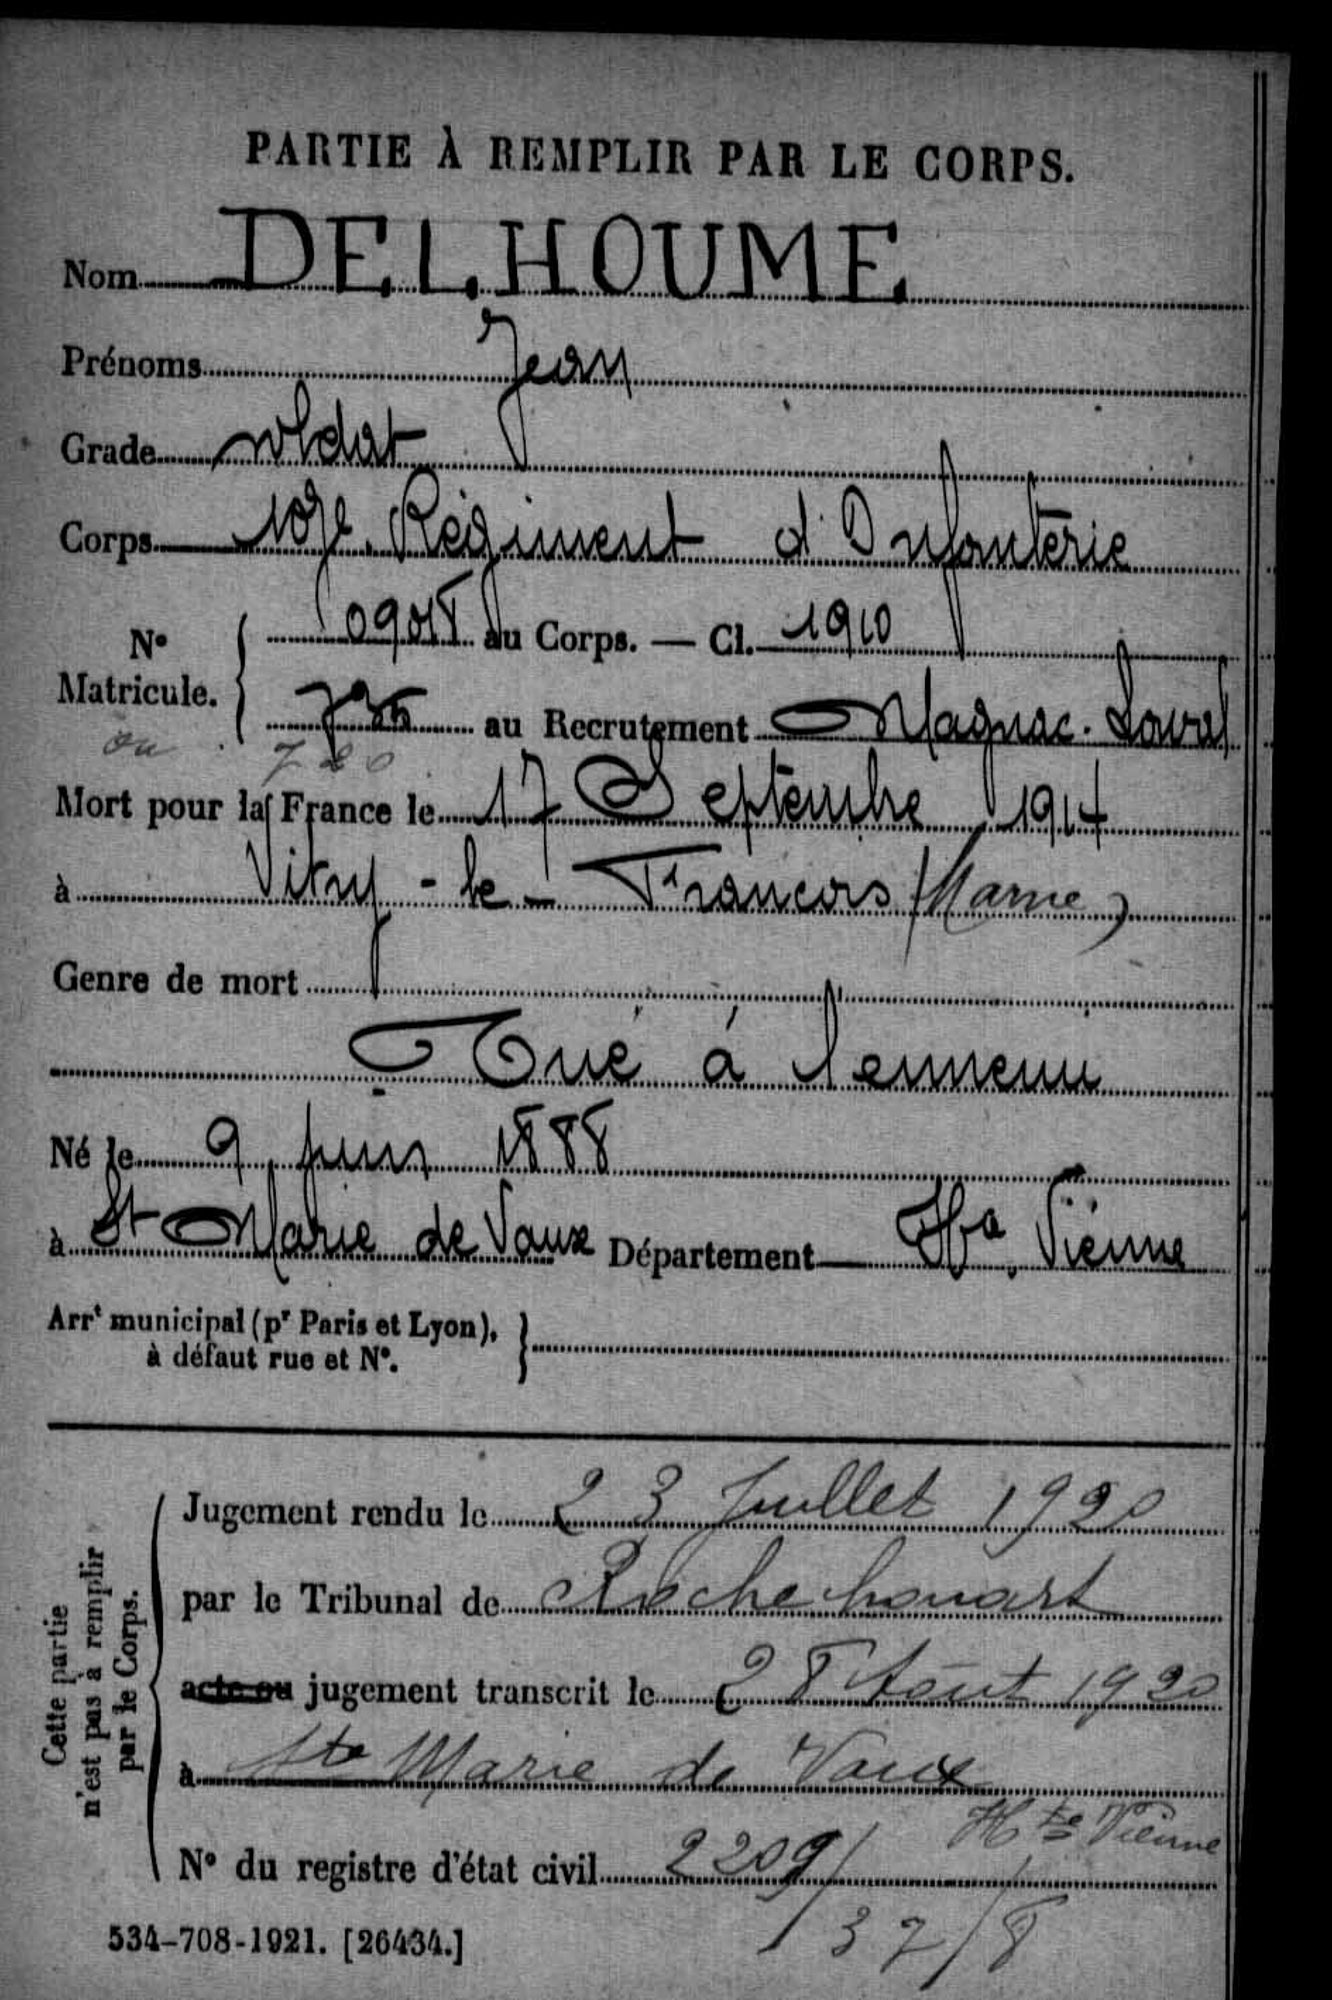 PARTIE À REMPLIR PAR LE CORPS.
Nom DELHOUME
Prénoms Jean
Grade soldat
Corps 107e Régiment d'Infanterie
N° Matricule. { 09018 au Corps. — Cl. 1910
736 au Recrutement Magnac-Laval
ou 720
Mort pour la France le 17 Septembre 1914
à Vitry-le-François (Marne)
Genre de mort
Tué à l'ennemi
Né le 9 juin 1888
à St Marie de Vaux Département Hte Vienne
Arrt municipal (pr Paris et Lyon), à défaut rue et N°. }
Cette partie n'est pas à remplir par le Corps.
Jugement rendu le 23 Juillet 1920
par le Tribunal de Rochechouart
acte ou jugement transcrit le 28 Août 1920
à Ste Marie de Vaux
Hte Vienne
N° du registre d'état civil 2209/
37/8
534-708-1921. [26434.]